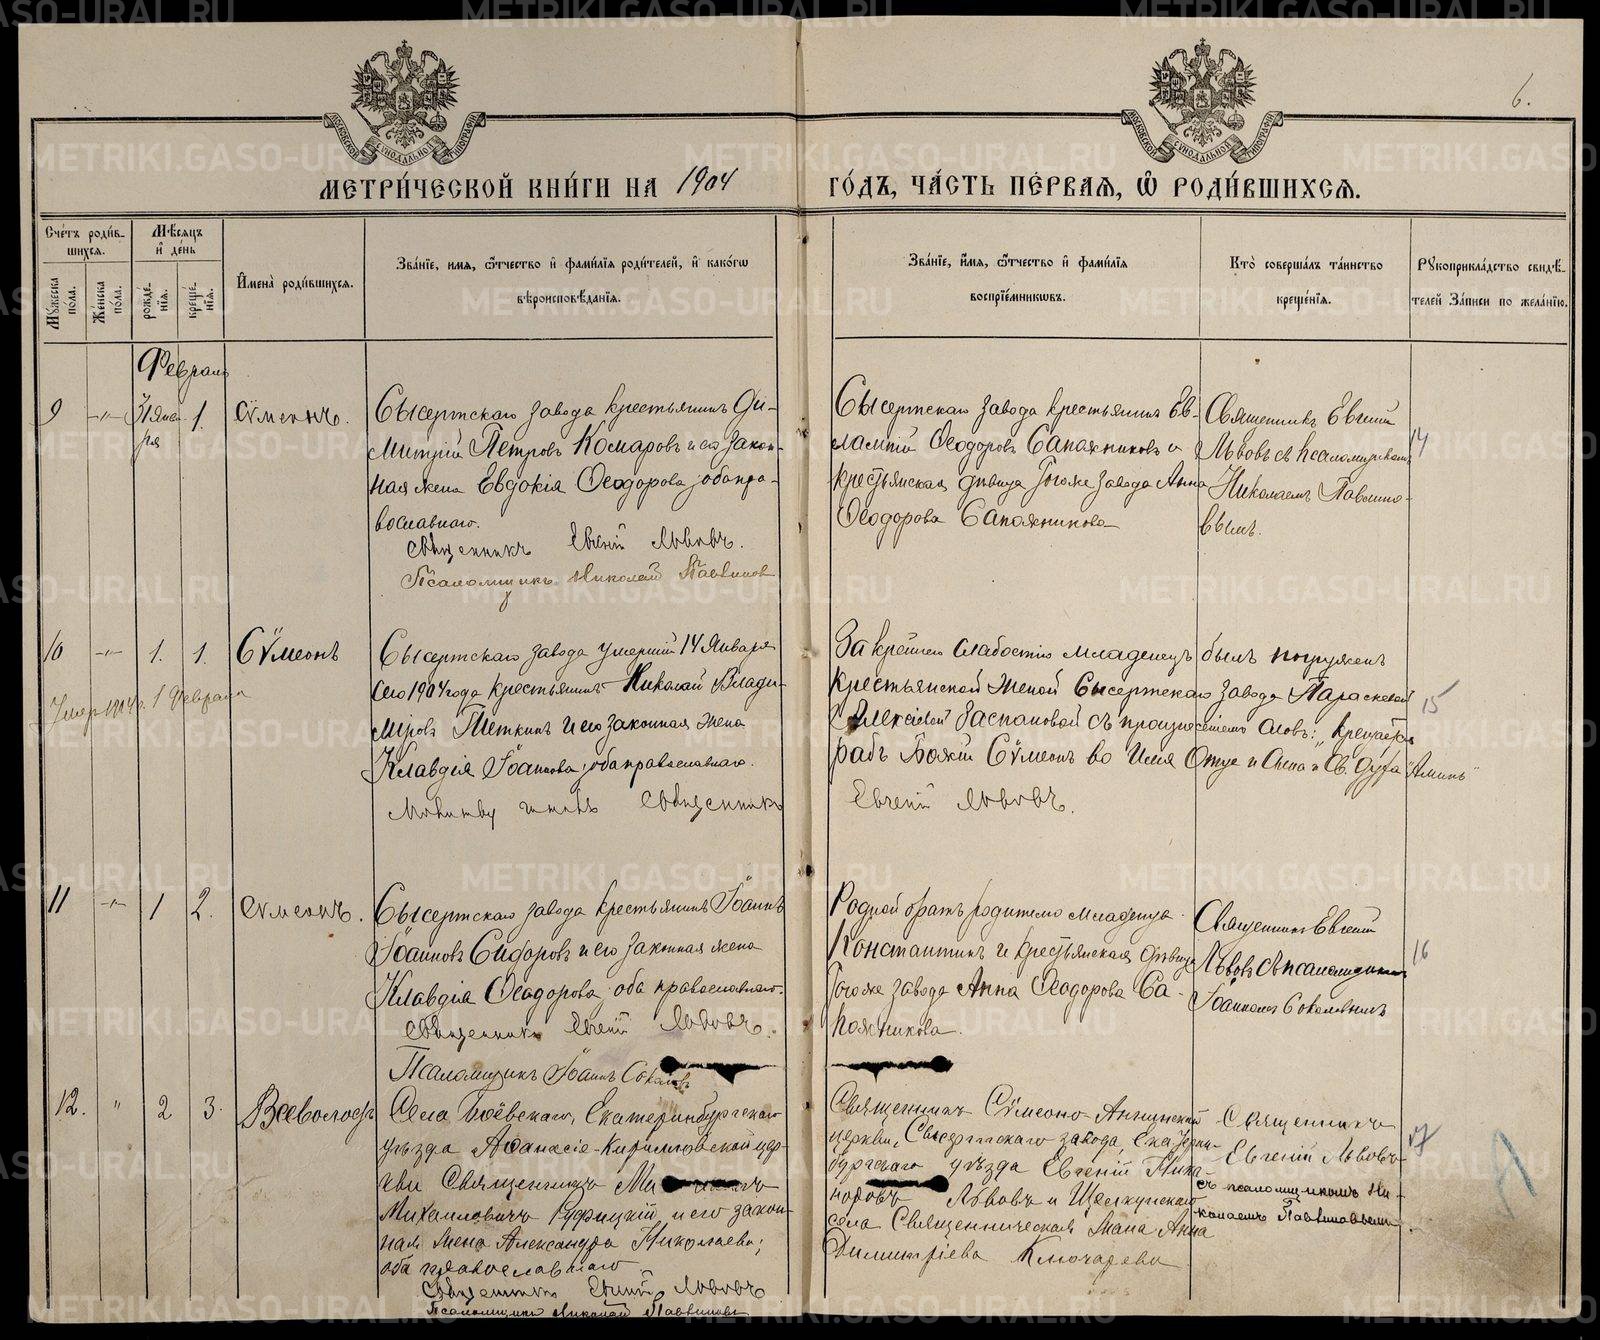 6.
МЕТРИ́ЧЕСКОЙ КНИ́ГИ НА 1904
ГО́ДЪ, ЧА́СТЬ ПЕ́РВАѦ, Ѡ҆ РОДИ́ВШИХСѦ.
Сче́тъ роди́в-
шихсѧ.
Мѣ́сѧцъ
и҆ де́нь
Мꙋ́жеска по́ла.
Же́нска по́ла.
рожде́-
нїѧ.
креще́-
нїѧ.
И҆мена̀ роди́вшихсѧ.
Зва́нїе, и҆мѧ, ѻ҆́тчество и҆ фами́лїѧ роди́телей, и҆ како́гѡ
вѣроисповѣ́данїѧ.
Зва́нїе, и҆́мѧ, ѻ҆́тчество и҆ фами́лїѧ
воспрїе́мникѡвъ.
Кто̀ соверша́лъ та́инство
креще́нїѧ.
Рꙋкоприкла́дство свидѣ́-
телей За́писи по жела́нїю.
Февраль
9 -"- 31 Янва-
ря
1.
Сѵмеонъ.
Сысертскаго завода крестьянинъ Ди-
митрій Петровъ Комаровъ и его закон-
ная жена Евдокія Ѳеодорова; оба пра-
вославнаго.
Священникъ Евгеній Львовъ.
Псаломщикъ Николай
Сысертскаго завода крестьянинъ Ев-
лампій Ѳеодоровъ Сапожниковъ и
крестьянская дѣвица тогоже завода Анна
Ѳеодорова Сапожникова
Священникъ Евгеній
Львовъ съ псаломщикомъ
Николаемъ
14
10 -"- 1. 1. Сѵмеонъ
Умеръ 1904 г. 1 Февраля
Сысертскаго завода умершій 14 Января
сего 1904 года крестьянинъ Николай Влади-
міровъ Теткинъ и его законная жена
Клавдія Іоаннова; оба православнаго.
Молитву читалъ Священникъ
За крайнею слабостію младенецъ былъ погруженъ
крестьянской женой Сысертскаго завода Параскевой
Алексіевой Заспановой съ произнесеніемъ словъ: "крещается
рабъ Божій Сѵмеонъ во Имя Отца и Сына и Св. Духа "Аминь"
Евгеній Львовъ.
15
11 -"- 1 2. Сѵмеонъ.
Сысертскаго завода крестьянинъ Іоаннъ
Іоанновъ Сидоровъ и его законная жена
Клавдія Ѳеодорова; оба православнаго.
Священникъ Евгеній Львовъ.
Псаломщикъ Іоаннъ Соколовъ
Родной братъ родителю младенца
Константинъ и крестьянская дѣвица
тогоже завода Анна Ѳеодорова Са-
пожникова.
Священникъ Евгеній
Львовъ съ псаломщикомъ
Іоанномъ Соколовымъ
16
12. " 2 3. Всеволодъ
Села Екатеринбургскаго
уѣзда Аѳанасіе-Кирилловской цер-
кви Священникъ
Михаиловичъ и его закон-
ная жена Александра Николаева;
оба православнаго.
Священникъ Евгеній Львовъ
Псаломщикъ Николай
Священникъ Сѵмеоно-Аннинской
церкви, Сысертскаго завода, Екатерин-
бургскаго уѣзда Евгеній Ника-
норовъ Львовъ и Щелкунскаго
села Священническая жена Анна
Димитріева Ключарева
Священникъ
Евгеній Львовъ
съ псаломщикомъ Ни-
колаемъ
17
METRIKI.GASO-URAL.RU